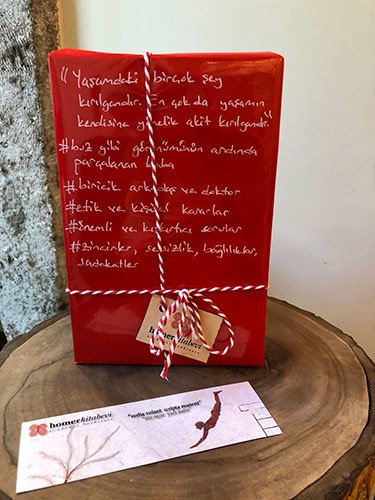 "Yaşamdaki birçok şey
kırılgandır. En çok da yaşamın
kendisine yönelik akit kırılgandır."
#buz gibi görünümünün ardında
parçalanan baba
#biricik arkadaş ve doktor
#etik ve kişisel kararlar
#önemli ve kışkırtıcı sorular
#zincirler, sessizlik, bağlılıklar,
sadakatler
homerkitabevi
homerkitabevi
"verba volant, scripta manent"
"söz uçar, yazı kalır"